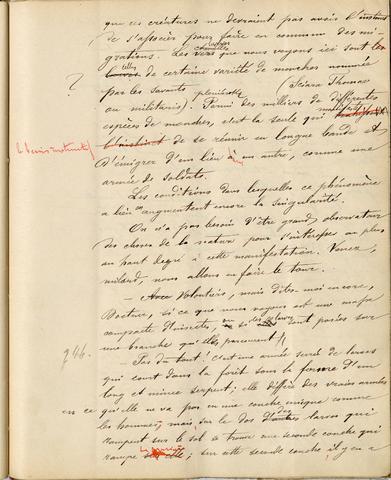 que ces créatures ne devraient pas avoir l'instinct
de s'associer pour faire en commun des mi-
grations. Les larves que nous voyons ici sont
celles de certaine variété de mouches nommée
?
par les savants (Sciara Thomae
ou militaris). Parmi des milliers de différentes
espèces de mouches, c'est la seule qui
de se réunir en longue bande et
d'émigrer d'un lieu à un autre, comme une
armée de soldats.
Les conditions dans lesquelles ce phénomène
a lieu en augmentent encore la singularité.
On n'a pas besoin d'être grand observateur
des choses de la nature pour s'intéresser au plus
haut degré à cette manifestation. Venez,
milord, nous allons en faire le tour.
— Avec volontiers, mais dites-moi encore,
Docteur, si ce que nous voyons est une masse
compacte d'insectes, ou si des larves sont posées sur
une branche qu'elles parcourent?
746.
— Pas du tout! c'est une armée serrée de larves
qui court dans la forêt sous la forme d'un
long et mince serpent; elle diffère des vraies armées
en ce qu'elle ne va pas en une couche unique comme
les hommes, mais sur le dos des larves qui
rampent sur le sol se trouve une seconde couche qui
rampe; sur cette seconde couche il y en a